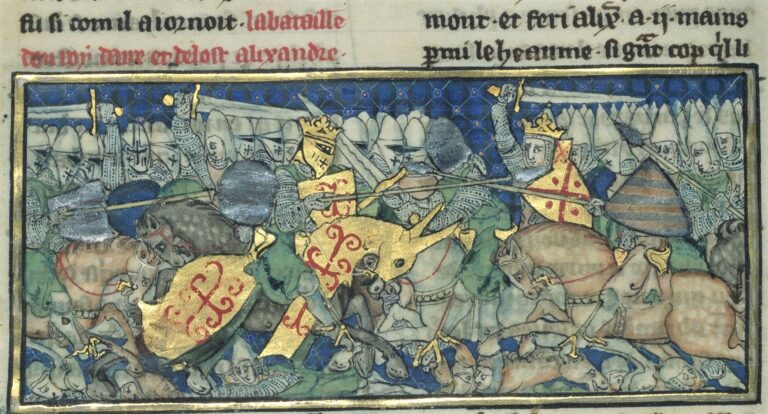 fu si com il aiornoit · labataille
dou roy daire et delost alixandre ·
mont · et feri alix̄ · a · ij · mains
ꝑmi le heaume · si gͣnt cop qͥl li